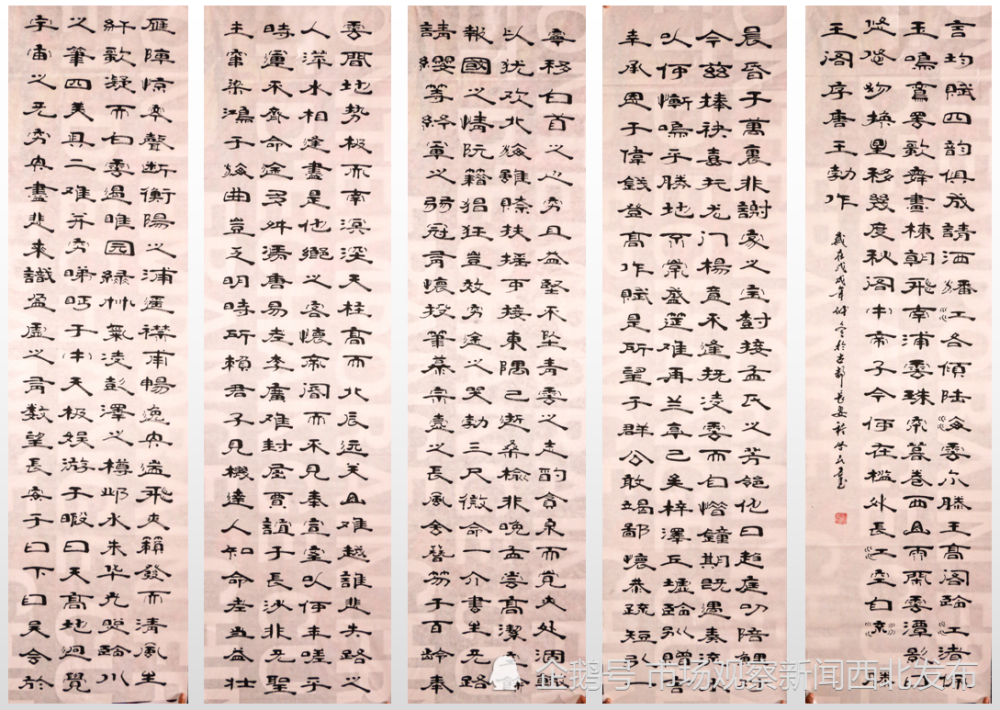 雁陣惊寒聲断衡陽之浦遥襟甫暢逸興遄飛爽籟發而清風生
纤歌凝而白雲遏睢园緑竹氣凌彭澤之樽邺水朱华光照臨川
之筆四美具二难并穷睇眄于中天极娱游于暇日天高地迥覺
宇宙之无穷興盡悲来識盈虚之有数望長安于日下目吴会於
雲間地势极而南溟深天柱高而北辰远关山难越誰悲失路之
人萍水相逢盡是他鄉之客懷帝阍而不見奉宣室以何年嗟乎
時運不齊命途多舛馮唐易老李廣难封屈賈誼于長沙非无聖
主窜梁鴻于海曲豈乏明時所賴君子見機達人知命老当益壮
寧移白首之心穷且益堅不坠青雲之志酌貪泉而觉爽处涸辙
以犹欢北海雖赊扶摇可接東隅已逝桑榆非晚孟尝高潔空餘
報國之情阮籍猖狂豈效穷途之哭勃三尺微命一介書生无路
請纓等終軍之弱冠有懷投筆慕宗悫之長風舍簪笏于百齡奉
晨昏于萬里非謝家之宝树接孟氏之芳邻他日趋庭叨陪鯉对
今兹捧袂喜托龙门楊意不逢抚凌雲而自惜鐘期既遇奏流水
以何慚嗚乎勝地不常盛筵难再兰亭已矣梓澤丘墟臨别贈言
幸承恩于偉餞登高作賦是所望于群公敢竭鄙懷恭疏短引一
言均賦四韵俱成請洒潘江各傾陆海雲尔滕王高阁臨江渚佩
玉鳴鸞罢歌舞畫棟朝飛南浦雲珠帘暮卷西山雨閑雲潭影日
悠悠物换星移幾度秋阁中帝子今何在槛外長江空自流滕
王阁序唐王勃作
歲在戊戌年 於古都長安
企鹅号 市场观察新闻西北发布